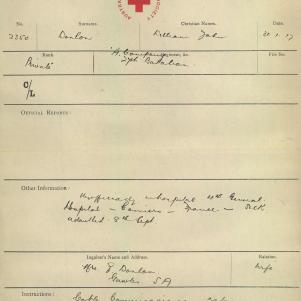 No.
Surname.
Christian Names.
Date.
3350
Donlon
William John
Rank
Regiment, &c.
File No.
Private
"A" Company
27th Battalion
O/L
OFFICIAL REPORTS:
Other Information:
Unofficially in hospital General
Hospital - Camiers - France - Sick
admitted 8th Sept.
Inquirer's Name and Address.
Relation.
Mrs Donlon
Gawler SA
Wife
Instructions:
Cable